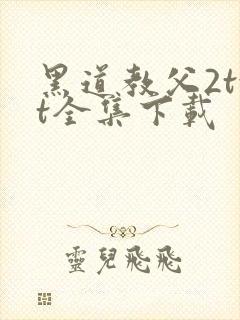 黑道教父2t
t全集下載
靈兒飛飛